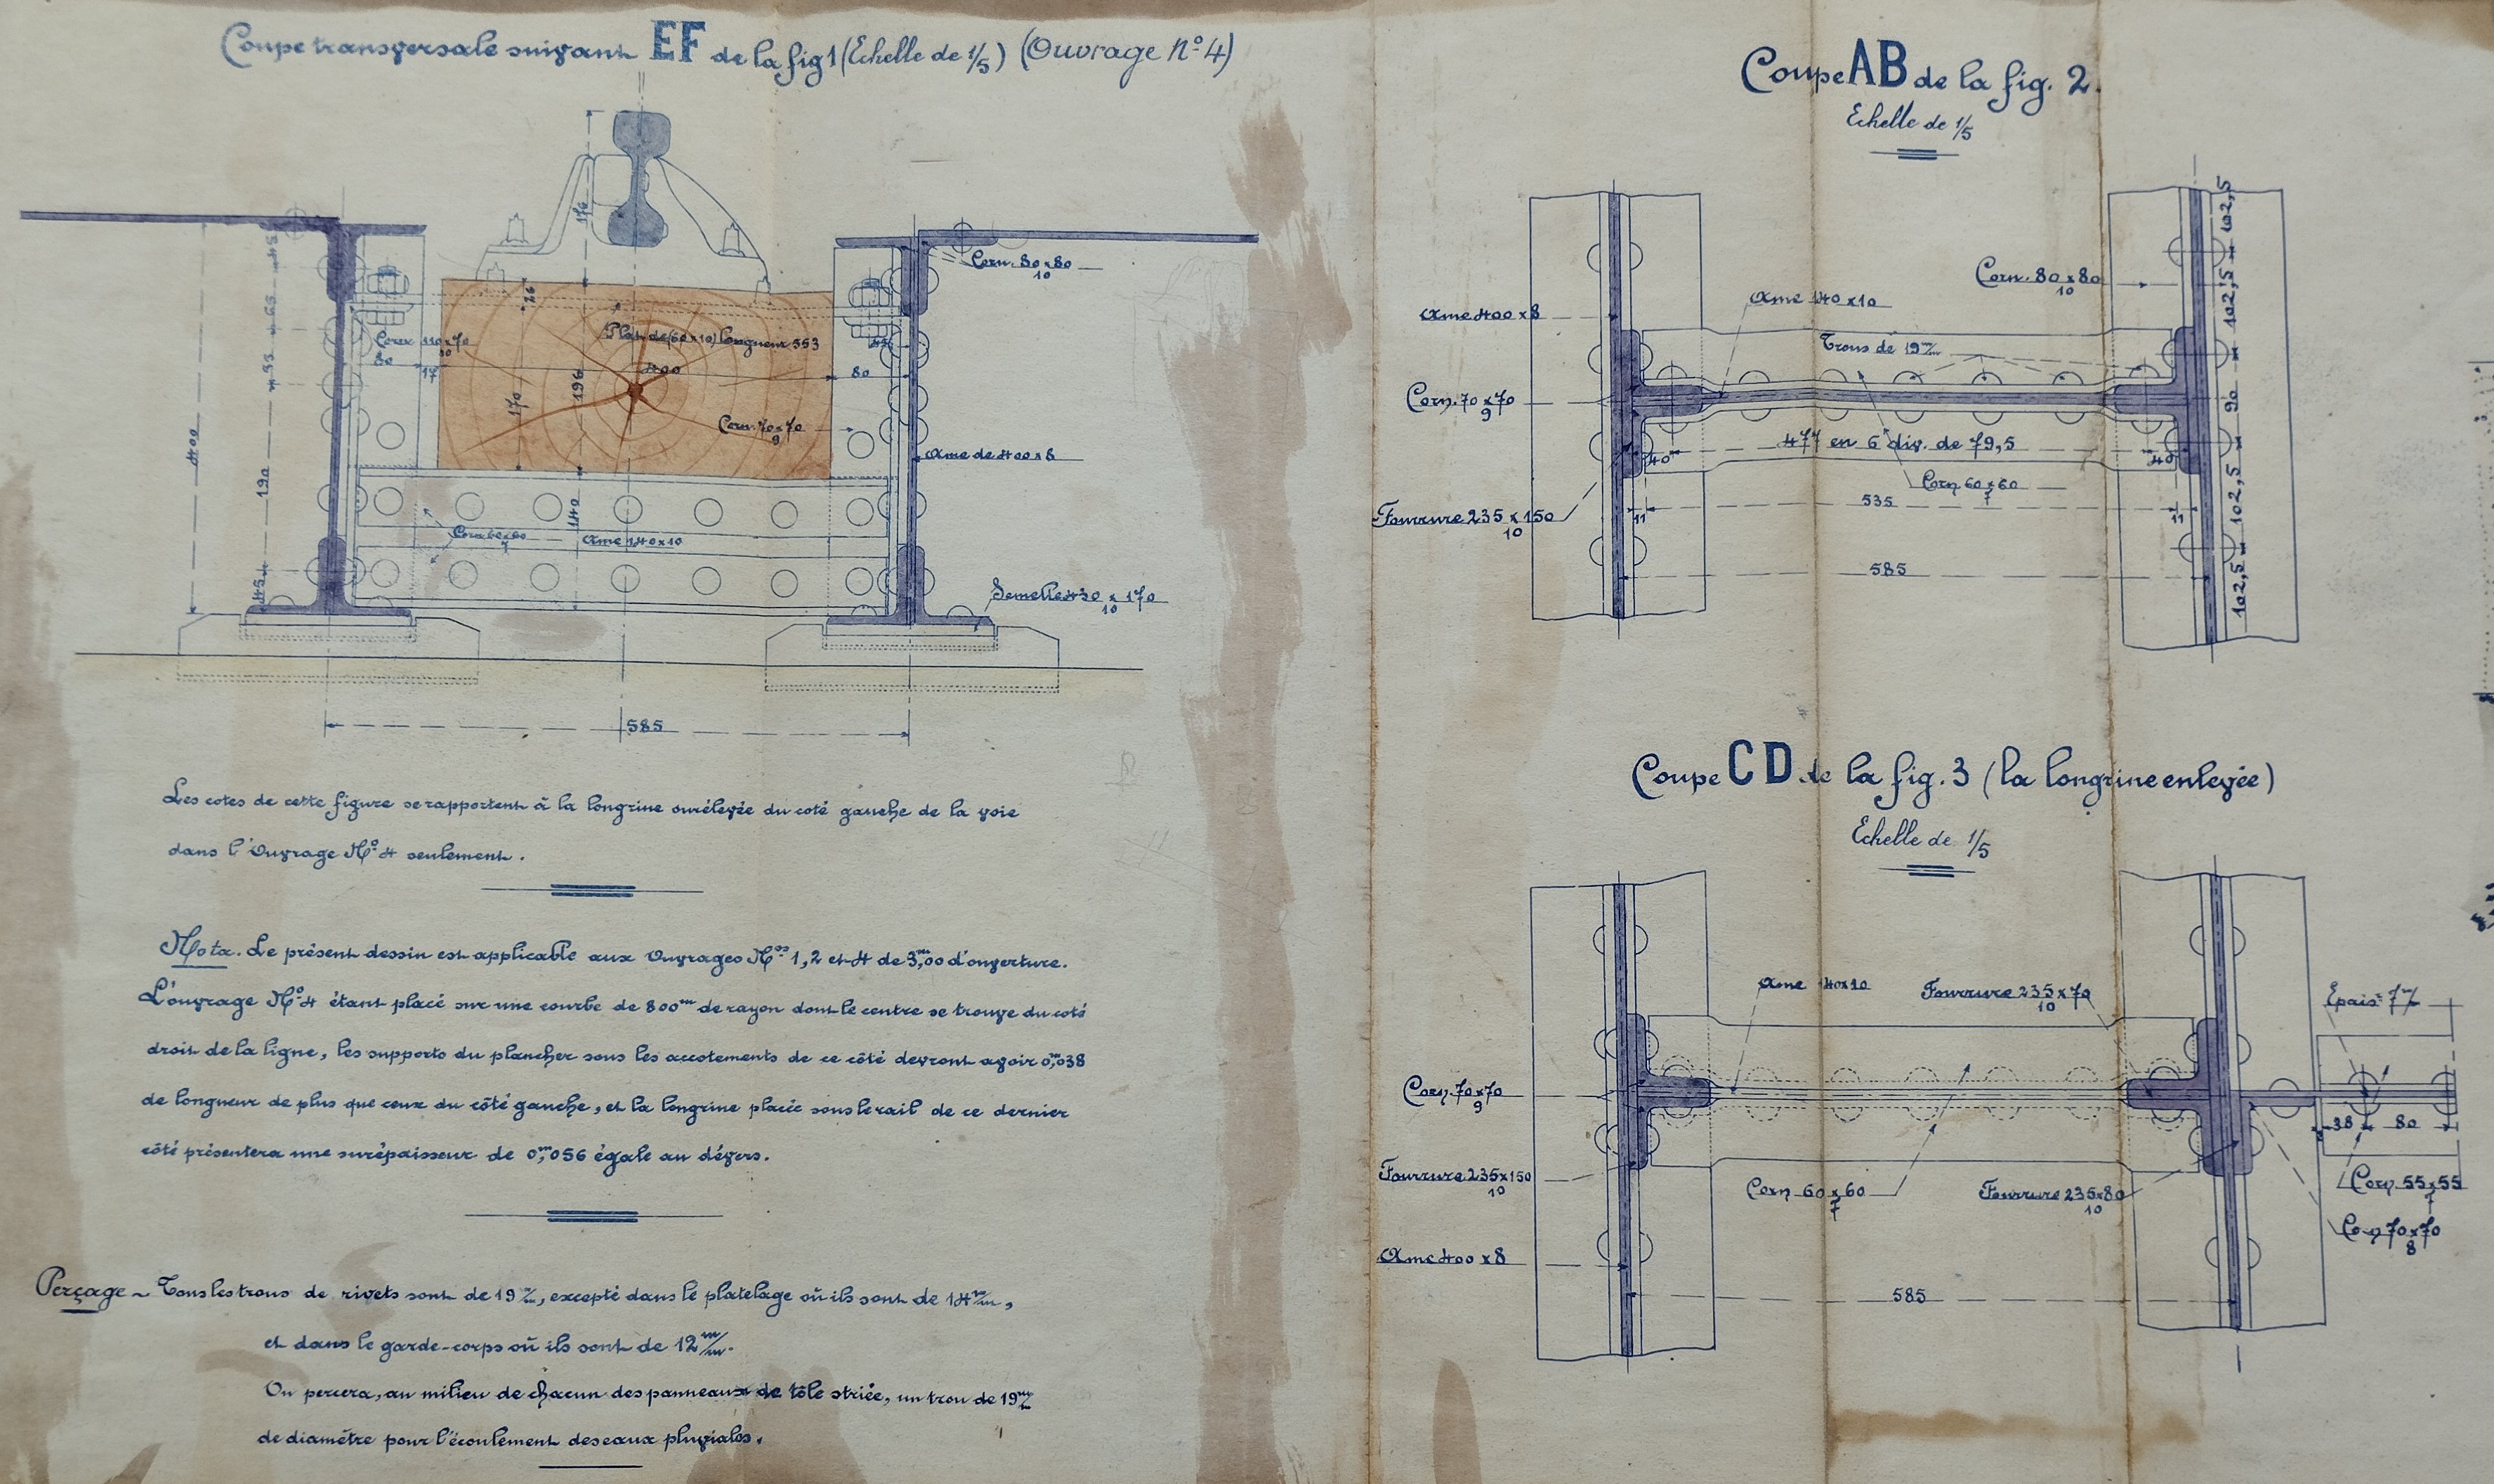 Coupe transversale suivant EF de la fig 1 (Echelle de 1/5) (Ouvrage N° 4)
176
45
65
55
190
45
400
Corn. 80 x 80
10
26
Plat de (60 x 10) longueur 553
Corn 110 x 70
10
80
17
400
80
45
170
196
Corn. 70 x 70
9
Ame de 400 x 8
140
Corn 60 x 60
7
Ame 140 x 10
Semelle 430 x 170
10
585
Les cotes de cette figure se rapportent à la longrine surélevée du coté gauche de la voie
dans l'Ouvrage N° 4 seulement.
Nota. Le présent dessin est applicable aux Ouvrages Nos 1, 2 et 4 de 3m,00 d'ouverture.
L'ouvrage N° 4 étant placé sur une courbe de 800m de rayon dont le centre se trouve du coté
droit de la ligne, les supports du plancher sous les accotements de ce côté devront avoir 0m,038
de longueur de plus que ceux du côté gauche, et la longrine placée sous le rail de ce dernier
côté présentera une surépaisseur de 0m,056 égale au dévers.
Perçage ~ Tous les trous de rivets sont de 19 m/m, excepté dans le platelage où ils sont de 14 m/m,
et dans le garde-corps où ils sont de 12 m/m.
On percera, au milieu de chacun des panneaux de tôle striée, un trou de 19 m/m
de diamètre pour l'écoulement des eaux pluviales.
Coupe AB de la fig. 2.
Echelle de 1/5
102,5
102,5
90
102,5
102,5
Corn. 80 x 80
10
Ame 400 x 8
Ame 140 x 10
Trous de 19 m/m
Corn. 70 x 70
9
477 en 6 div. de 79,5
40
40
Corn 60 x 60
7
Fourrure 235 x 150
10
11
535
11
585
Coupe CD de la fig. 3 (la longrine enlevée)
Echelle de 1/5
Ame 140 x 10
Fourrure 235 x 70
10
Epaisr 7 m/m
Corn. 70 x 70
9
38
80
Fourrure 235 x 150
10
Corn 60 x 60
7
Fourrure 235 x 80
10
Corn. 55 x 55
7
Corn 70 x 70
8
Ame 400 x 8
585